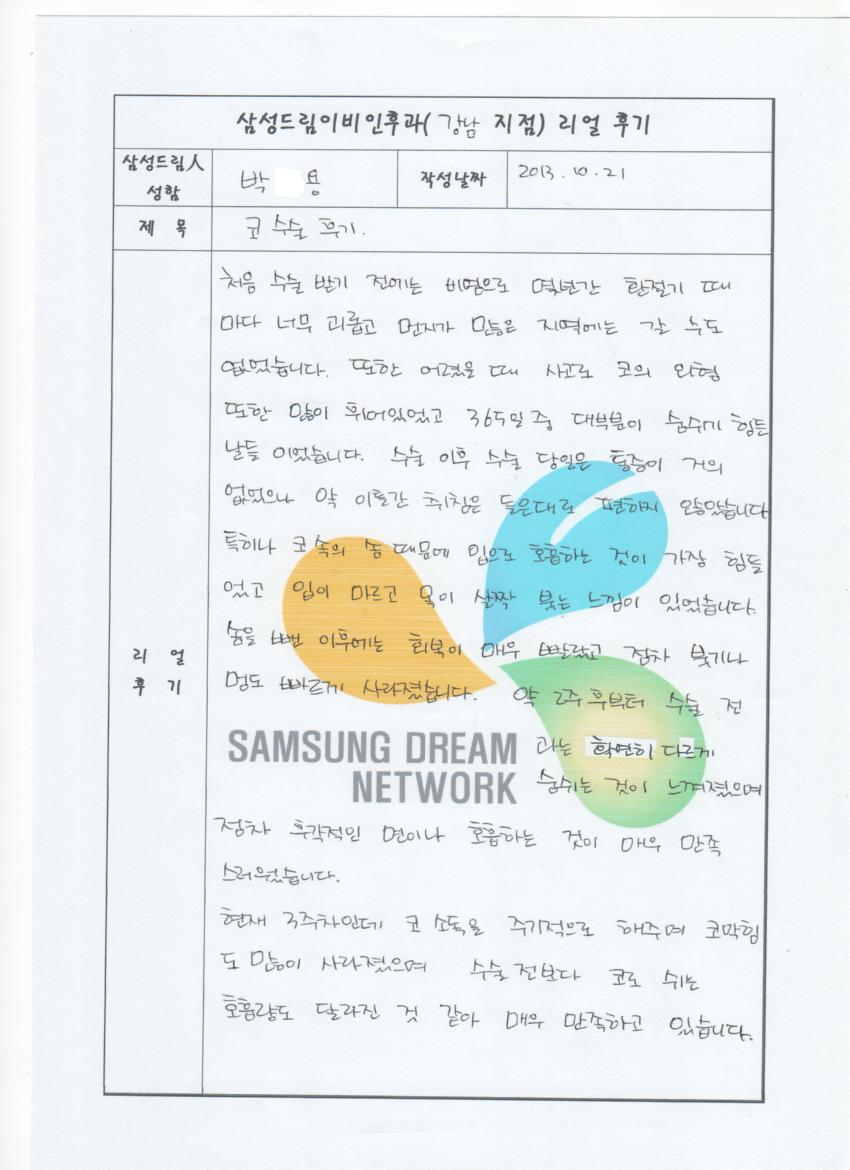 삼성드림이비인후과( 강남 지점) 리얼 후기
삼성드림人
성함
박 용
작성날짜
2013. 10. 21
제 목
코 수술 후기.
처음 수술 받기 전에는 비염으로 몇년간 환절기 때
마다 너무 괴롭고 먼지가 많은 지역에는 갈 수도
없었습니다. 또한 어렸을 때 사고로 코의 외형
또한 많이 휘어있었고 365일 중 대부분이 숨쉬기 힘든
날들 이었습니다. 수술 이후 수술 당일은 통증이 거의
없었으나 약 이틀간 취침은 들은대로 편하지 않았습니다
특히나 코 속의 솜 때문에 입으로 호흡하는 것이 가장 힘들
었고 입이 마르고 목이 살짝 붓는 느낌이 있었습니다.
솜을 뺀 이후에는 회복이 매우 빨랐고 점차 붓기나
멍도 빠르게 사라졌습니다. 약 2주 후부터 수술 전
과는 확연히 다르게
숨쉬는 것이 느껴졌으며
SAMSUNG DREAM
NETWORK
점차 후각적인 면이나 호흡하는 것이 매우 만족
스러웠습니다.
현재 3주차인데 코 소독을 주기적으로 해주며 코막힘
도 많이 사라졌으며 수술 전보다 코로 쉬는
호흡량도 달라진 것 같아 매우 만족하고 있습니다.
리 얼
후 기